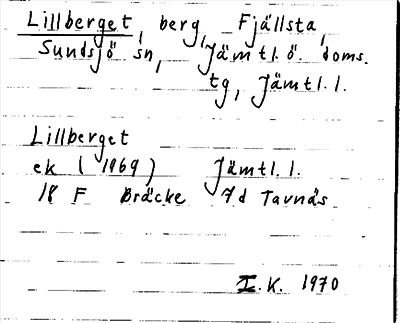 Lillberget, berg, Fjällsta,
Sundsjö sn, Jämtl. ö. doms.
tg, Jämtl. l.
Lillberget
ek (1969) Jämtl. l.
18 F Bräcke 7d Tavnäs
I.K. 1970